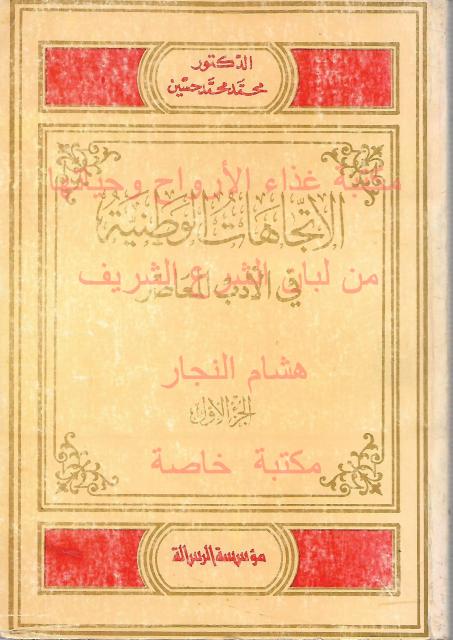 الدكتور
محمد محمد حسين
مكتبة غذاء الأرواح وحديثها
الاتجاهات الوطنية
من لباب الشرع الشريف
في الأدب المعاصر
هشام النجار
الجزء الأول
مكتبة خاصة
مؤسسة الرسالة